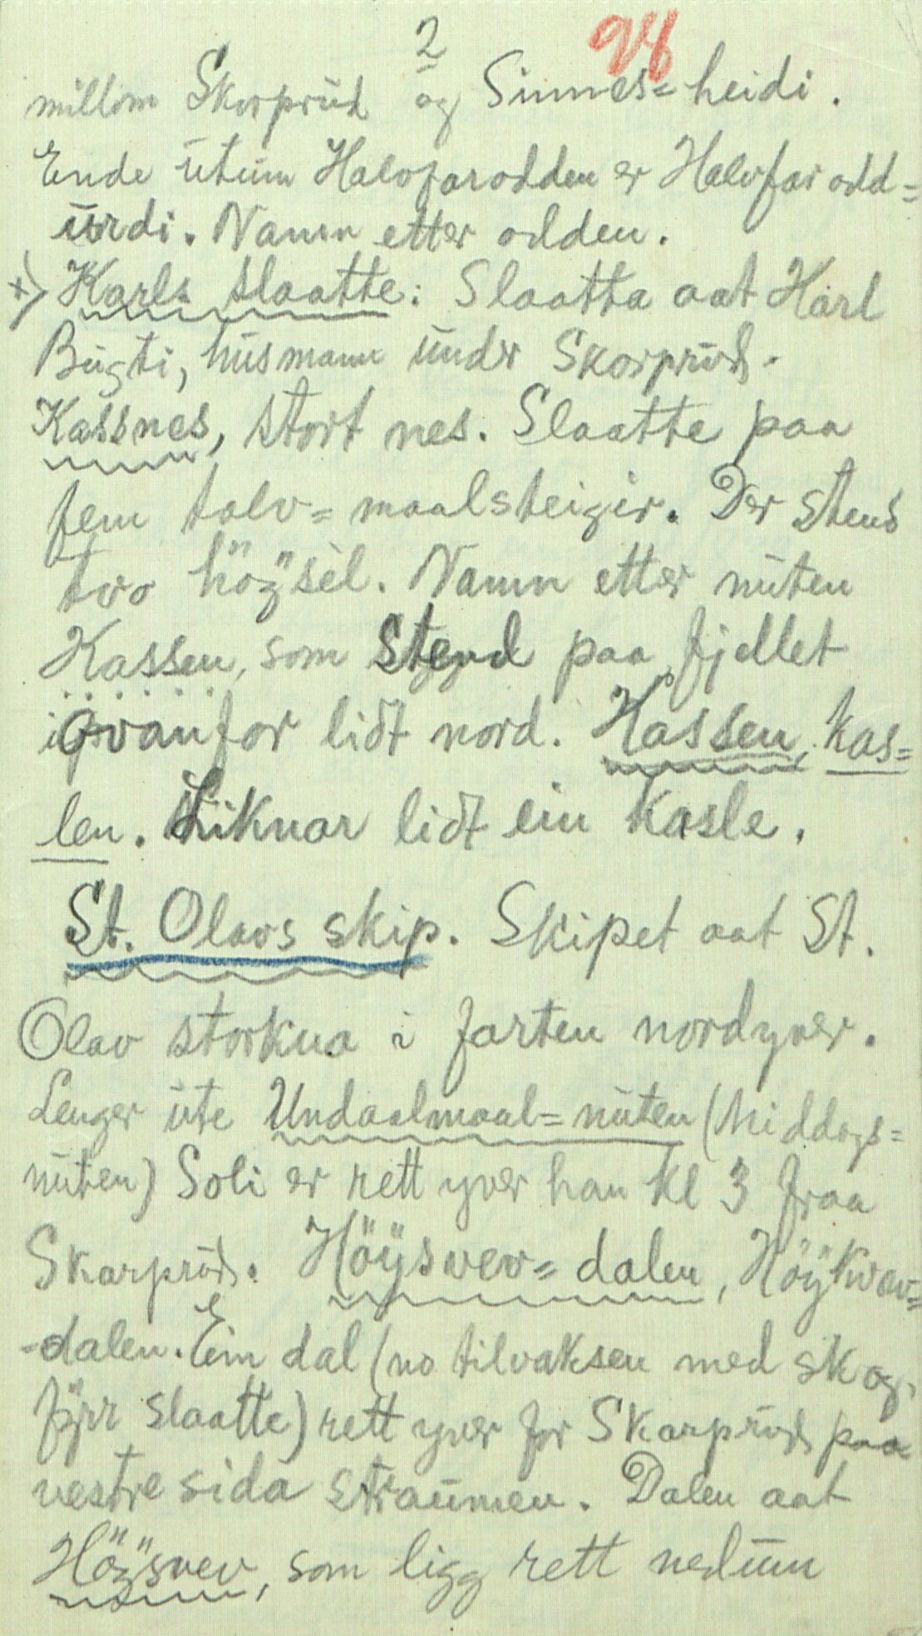 2
98
millom Skorprud og Sinnes=heidi.
Ende utum Halvfarodden er Halvfarodd=
urdi. Namn etter odden.
+) Karls slaatte: Slaatta aat Karl
Bugti, husmann under Skorprud.
Kassnes, stort nes. Slaatte paa
fem tolv=maalsteigir. Der stend
tvo höÿsèl. Namn etter nuten
Kassen, som stend paa fjellet
ovanfor lidt nord. Kassen, kas=
len. Liknar lidt ein kasle.
St. Olavs skip. Skipet aat St.
Olav storkna i farten nordyver.
Lenger ute Undaalmaal=nuten (Middags=
nuten) Soli er rett yver han kl 3 fraa
Skarprud. Höÿsvev=dalen, Höÿkvav=
-dalen. Ein dal (no tilvaksen med skog,
fyrr slaatte) rett yver for Skarprud paa
vestre sida straumen. Dalen aat
Höÿsvev, som ligg rett nedum